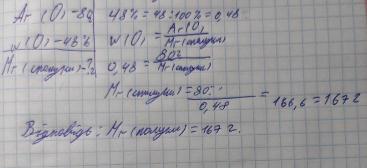 Ar (O) - 80г 48% = 48 : 100% = 0,48
w (O) - 48% W(O) = Ar(O) / Mr(сполуки)
Mr (сполуки) - ? 0,48 = 80г / Mr(сполуки)
Mr (сполуки) = 80г / 0,48 = 166,6 = 167 г
Відповідь : Mr (сполуки) = 167 г.